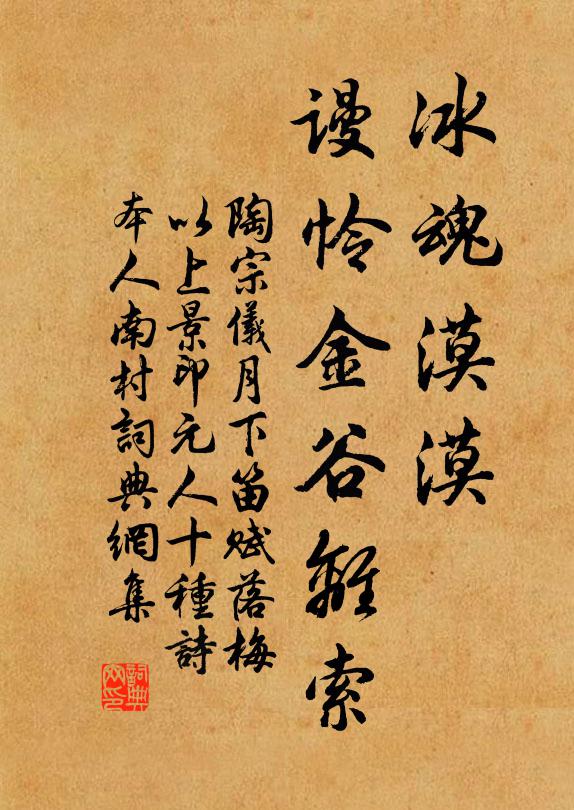 冰魂漠漠
谩怜金谷離索
陶宗儀月下笛賦落梅
以上景印元人十種詩
本人南村詞典網集
詞典
网印